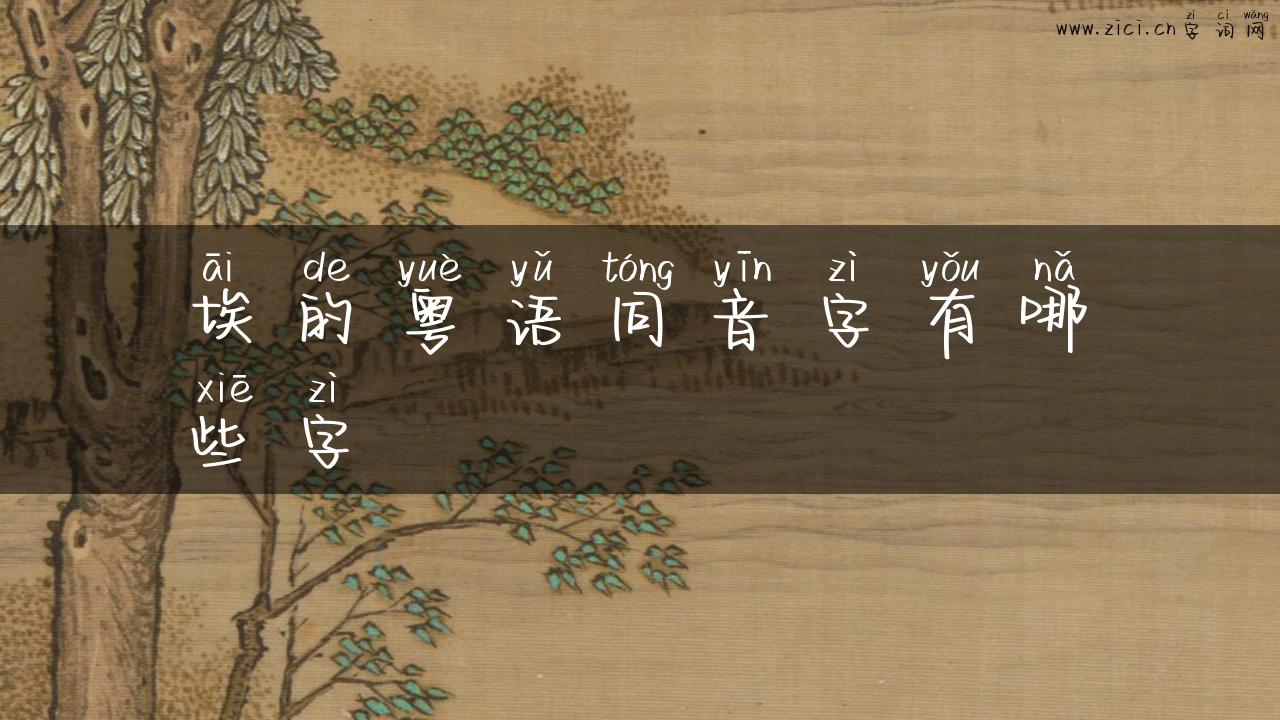 zì cí wǎng
www.zici.cn 字词网
āi de yuè yǔ tóng yīn zì yǒu nǎ
埃的粤语同音字有哪
xiē zì
些字